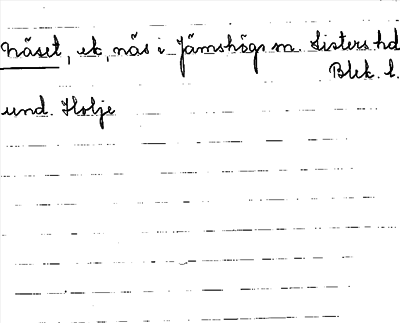 Näset, ek, näs i Jämshögs sn. Listers hd
Blek. l.
und. Holje